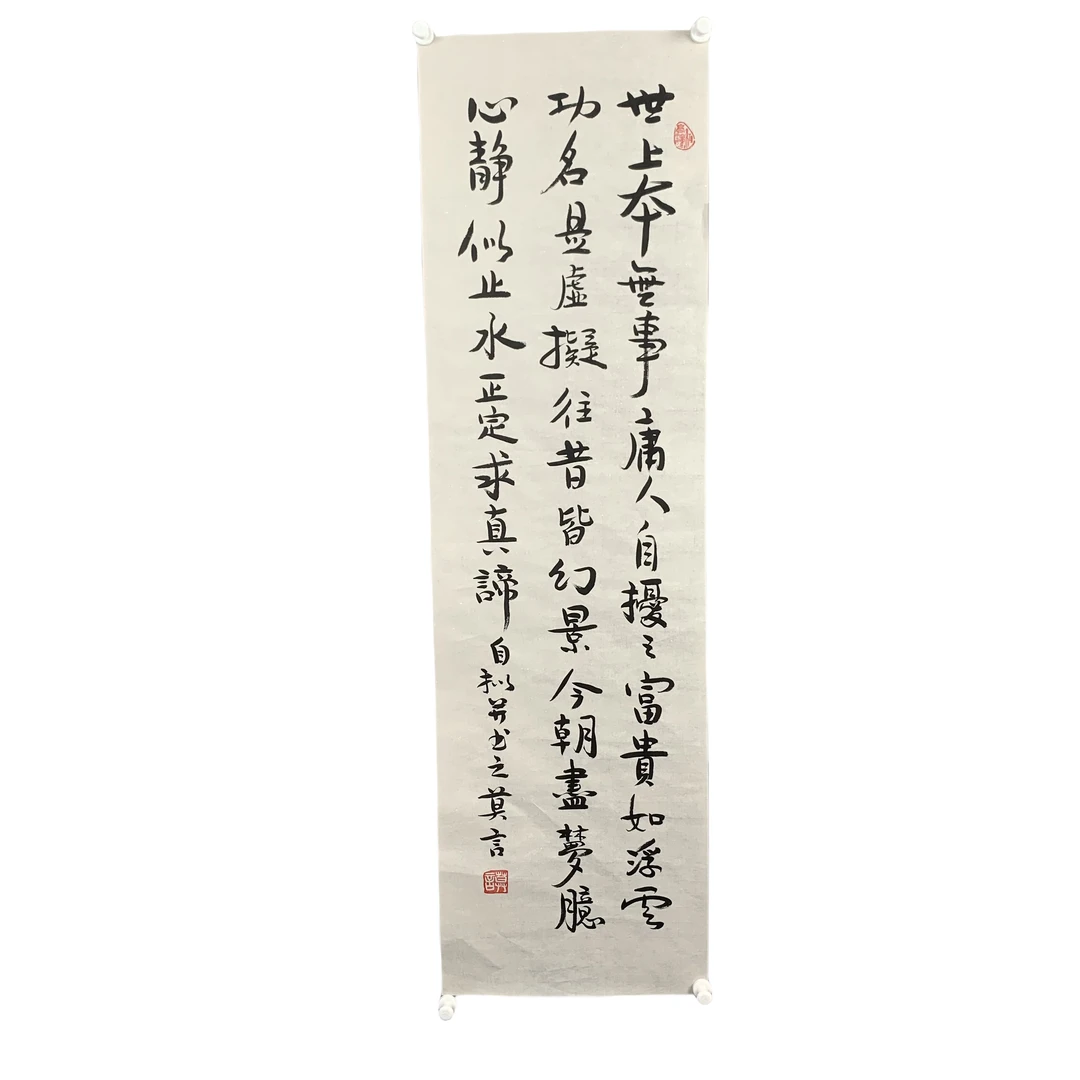 世上本無事庸人自擾之富貴如浮雲
功名是虛擬往昔皆幻景今朝盡夢臆
心靜似止水正定求真諦自拟并书之莫言
莫言